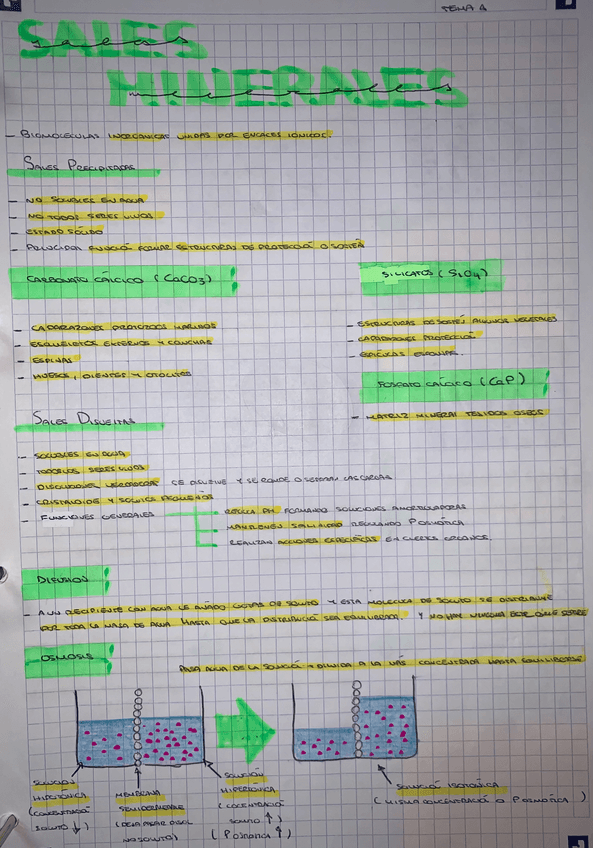 TEMA 1
SALES
sales
MINERALES
minerales
- BIOMOLÉCULAS INORGÁNICAS UNIDAS POR ENLACES IÓNICOS.
SALES PRECIPITADAS
- NO SOLUBLES EN AGUA
- NO TODOS SERES VIVOS
- ESTADO SÓLIDO
- PRINCIPAL FUNCIÓ FORMAR ESTRUCTURAS DE PROTECCIÓ O SOSTÉN
CARBONATO CÁLCICO (CaCO3)
- CAPARAZONES PROTOZOOS MARINOS
- ESQUELETOS EXTERNOS Y CONCHAS
- ESPINAS
- HUESOS, DIENTES Y OTOLITOS
SILICATOS (SiO4)
- ESTRUCTURAS DE SOSTÉ ALGUNOS VEGETALES
- CAPARAZONES PROTECCIÓN
- ESPÍCULAS ESPONJAS.
FOSFATO CÁLCICO (CaP)
- MATRIZ MINERAL TEJIDOS ÓSEOS
SALES DISUELTAS
- SOLUBLES EN AGUA
- TODOS LOS SERES VIVOS
- SE DISUELVE Y SE ROMPE O SEPARAN LAS CARGAS
- CRISTALOIDE Y SOLUTOS PEQUEÑOS
- FUNCIONES GENERALES
REGULA PH FORMANDO SOLUCIONES AMORTIGUADORAS
MANTIENEN SALINIDAD REGULANDO POSMÓTICA
REALIZAN ACCIONES ESPECÍFICAS EN CIERTOS ÓRGANOS.
DIFUSIÓN
- A UN RECIPIENTE CON AGUA LE AÑADO GOTAS DE SOLUTO Y ESTA MOLÉCULA DE SOLUTO SE DISTRIBUYE
POR TODA LA MASA DE AGUA HASTA QUE LA DISTRIBUCIÓ SEA EQUILIBRADA. Y NO HAY NINGUNA POR QUE SOBRE
ÓSMOSIS
PASA AGUA DE LA SOLUCIÓ + DILUIDA A LA MÁS CONCENTRADA HASTA EQUILIBRARSE
SOLUCIÓN
HIPOTÓNICA
(CONCENTRACIÓ
SOLUTO ↓)
MEMBRANA
SEMIPERMEABLE
(DEJA PASAR DISOL
NO SOLUTO)
SOLUCIÓN
HIPERTÓNICA
(CONCENTRACIÓ
SOLUTO ↑)
(POSMÓTICA ↑)
SOLUCIÓ ISOTÓNICA
(MISMA CONCENTRACIÓ O POSMÓTICA)